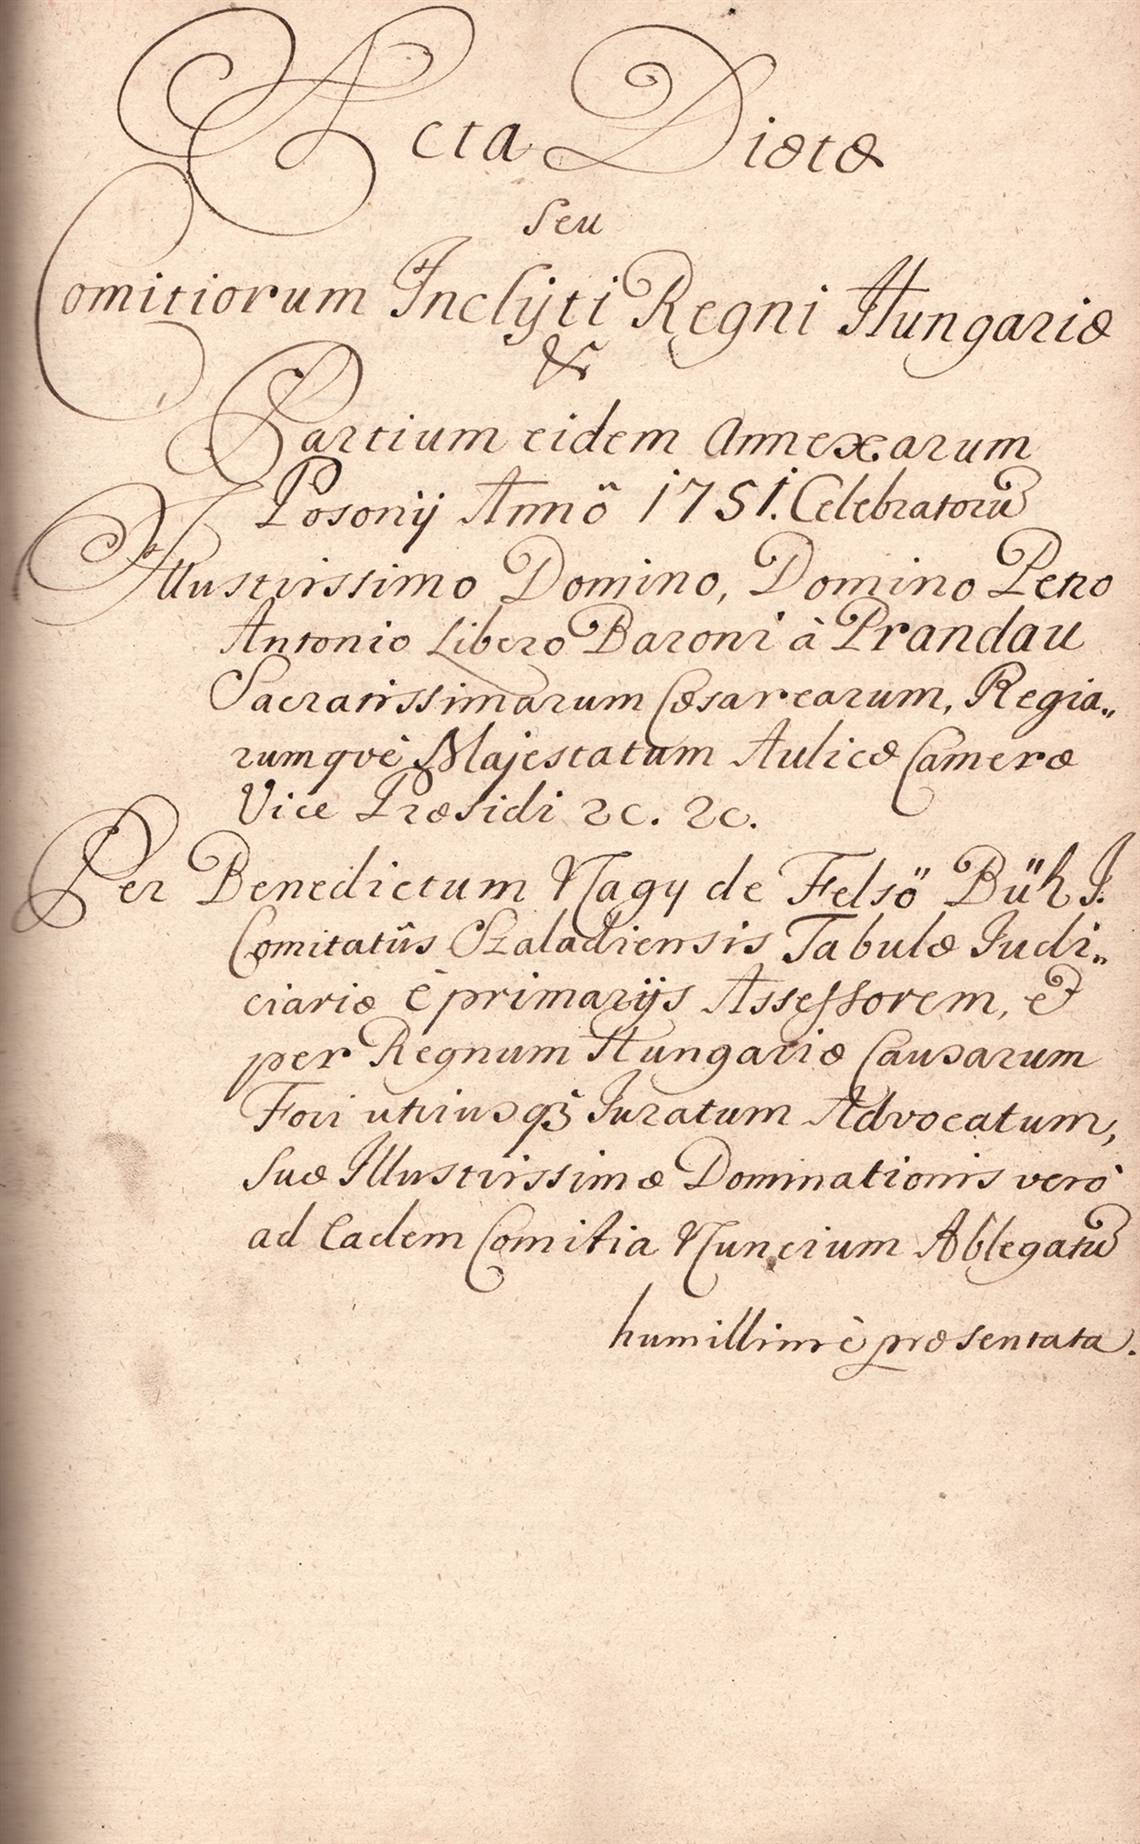 Acta Diætæ
seu
Comitiorum Inclÿti Regni Hungariæ
&
Partium eidem Annexarum
Posonÿ Annô 1751. Celebratorũ
Illustrissimo Domino, Domino Petro
Antonio Libero Baroni à Prandau
Sacratissimarum Cæsarearum, Regia„
rumqvè Majestatum Aulicæ Cameræ
Vice Præsidi &c. &c.
Per Benedictum Nagy de Felsö Bük I.
Comitatûs Szaladiensis Tabulæ Iudi„
ciariæ è primarÿs Assessorem, et
per Regnum Hungariæ Causarum
Fori utriusq3 Iuratum Advocatum,
Suæ Illustrissimæ Dominationis verò
ad Eadem Comitia Nuncium Ablegatũ
humillimè præsentata.